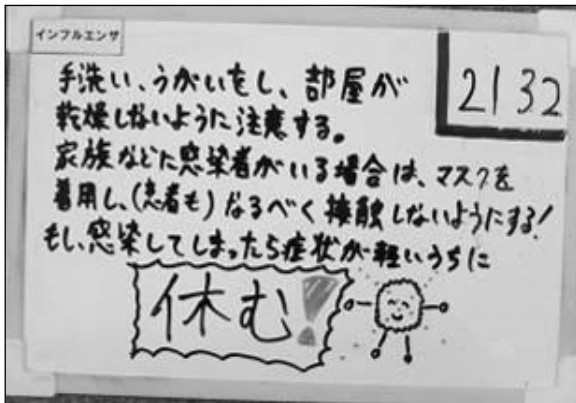 インフルエンザ
2132
手洗い、うがいをし、部屋が
乾燥しないように注意する。
家族などに感染者がいる場合は、マスクを
着用し、(患者も)なるべく接触しないようにする!
もし、感染してしまったら症状が軽いうちに
休む!